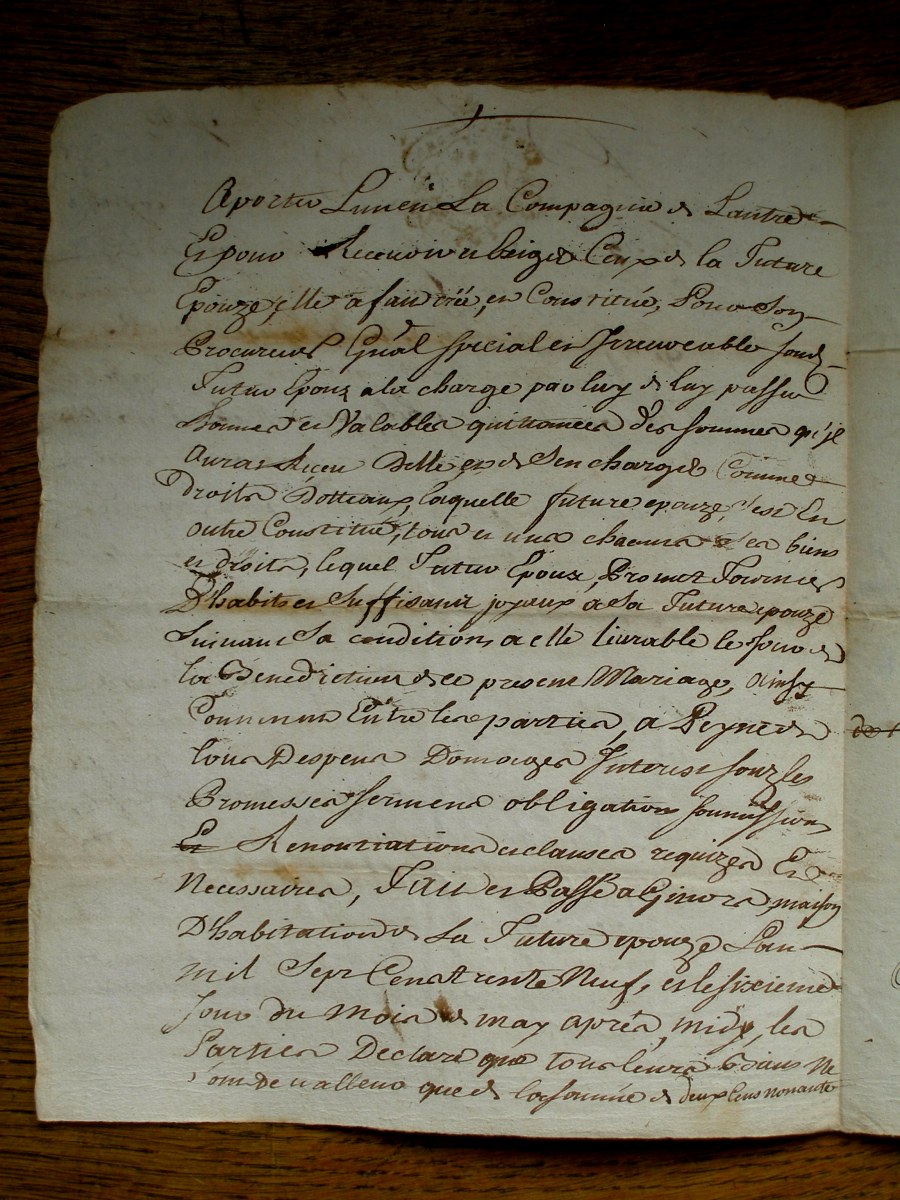 aporter L'un en La Compagnie de L'autre
Et pour Recevoir et Exiger Ceux de la Future
Epouze, elle a fait crée, et Constitué, pour son
Procureur Gñal special et Irrevocable sond.
Futur Epoux a la charge par luy de luy passer
bonnes et Valables quittances des sommes qu'jl
auras Receu Delle, et de s'en charger Comme
droits Dotteaux, laquelle future epouze, s'est En
outre Constitué, tous et uns chacuns ses biens
et droits, lequel Futur Epoux Promet Fournir
D'habits et suffisant joyeux a sa Future epouze
suivant sa condition, a elle livrable le jour de
la Benediction de ce present Mariage, ainsy
Convenu Entre les parties, a Peyne de
tous Despens Domages Interest sous les
Promesses serment obligations soumissions
Et Renontiations et clauses requizes Et
Necessaires, Fait et Passé a maison
D'habitation de La Future epouze L'an
mil Sept Cens trente Neuf, et le sixieme
Jour du Mois de may aprés, midy, les
Parties Declare que tous leurs biens Ne
de valleur que de la somme de deux Cens nonante